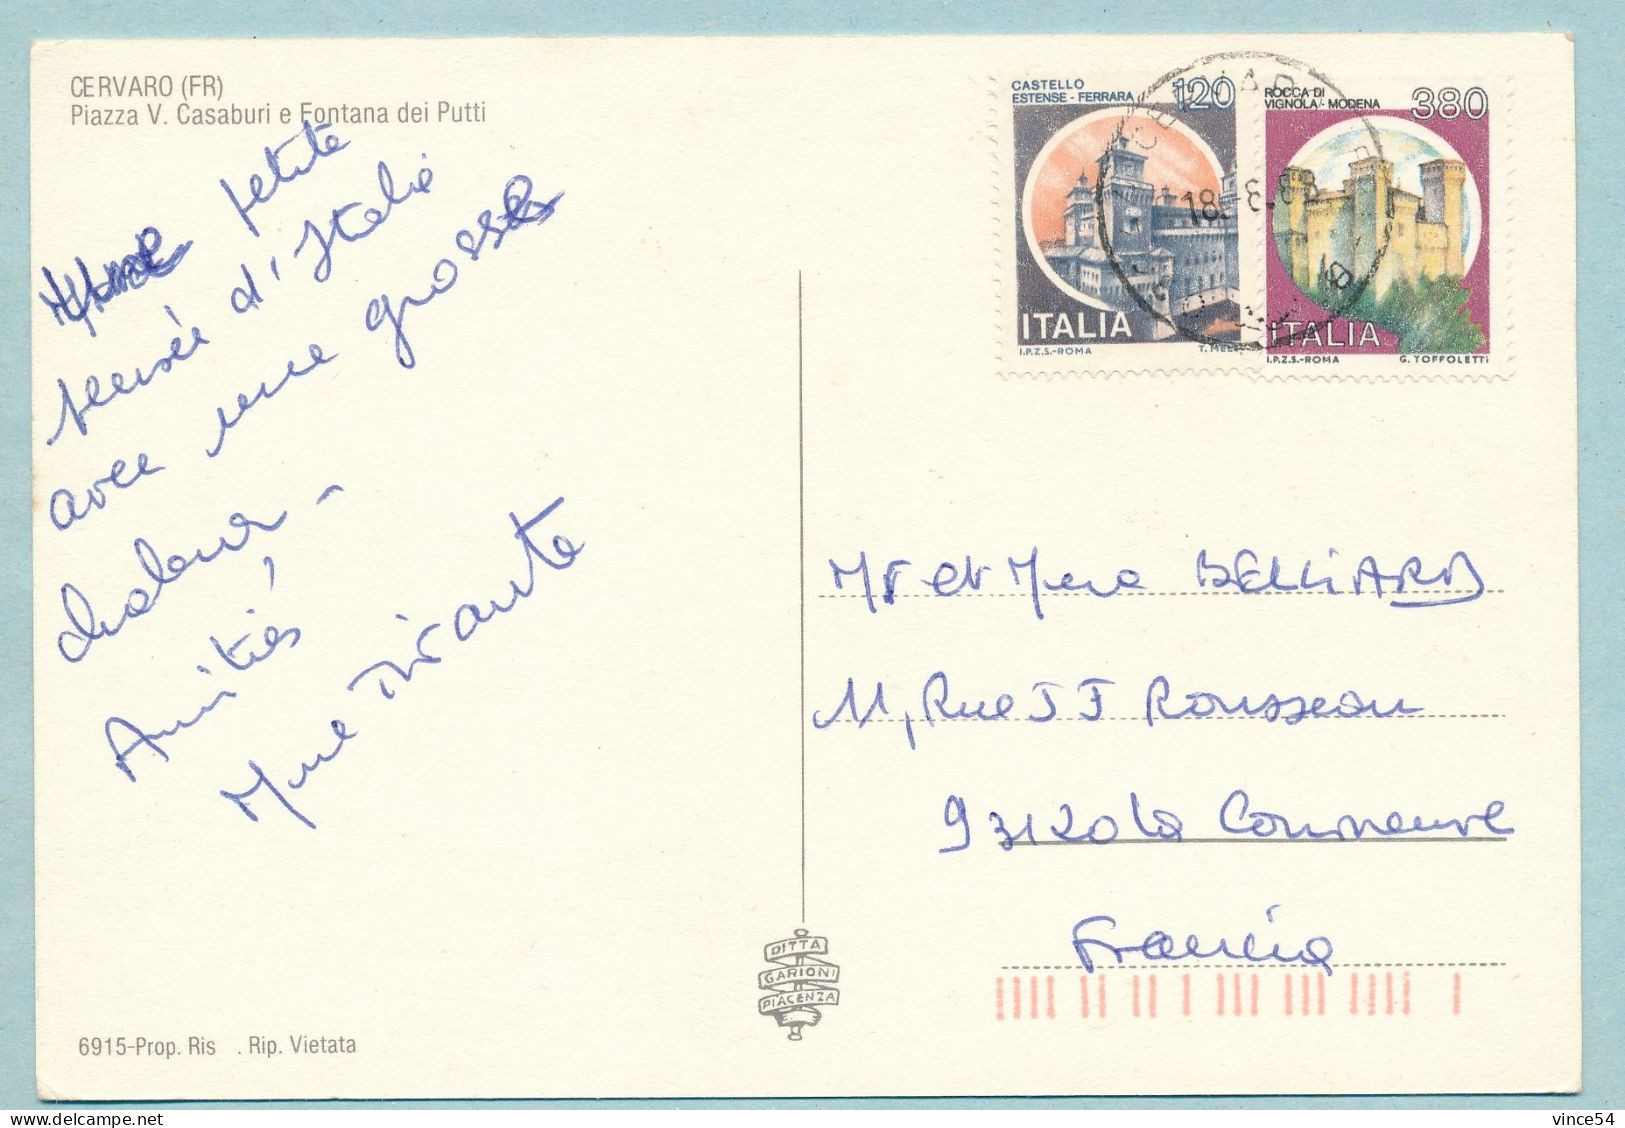 CERVARO (FR)
Piazza V. Casaburi e Fontana dei Putti
Une petite
pensée d'Italie
avec une grosse
chaleur -
Amitiés,
Mme Mirante
CASTELLO
ESTENSE - FERRARA
120
ITALIA
I.P.Z.S.-ROMA
ROCCA DI
VIGNOLA - MODENA
380
ITALIA
I.P.Z.S.-ROMA
G. TOFFOLETTI
18.-8.88
Mr et Mme BELLIARD
11, Rue J J Rousseau
93120 La Courneuve
Francia
DITTA
GARIONI
PIACENZA
6915-Prop. Ris . Rip. Vietata
delcampe.net
vince54